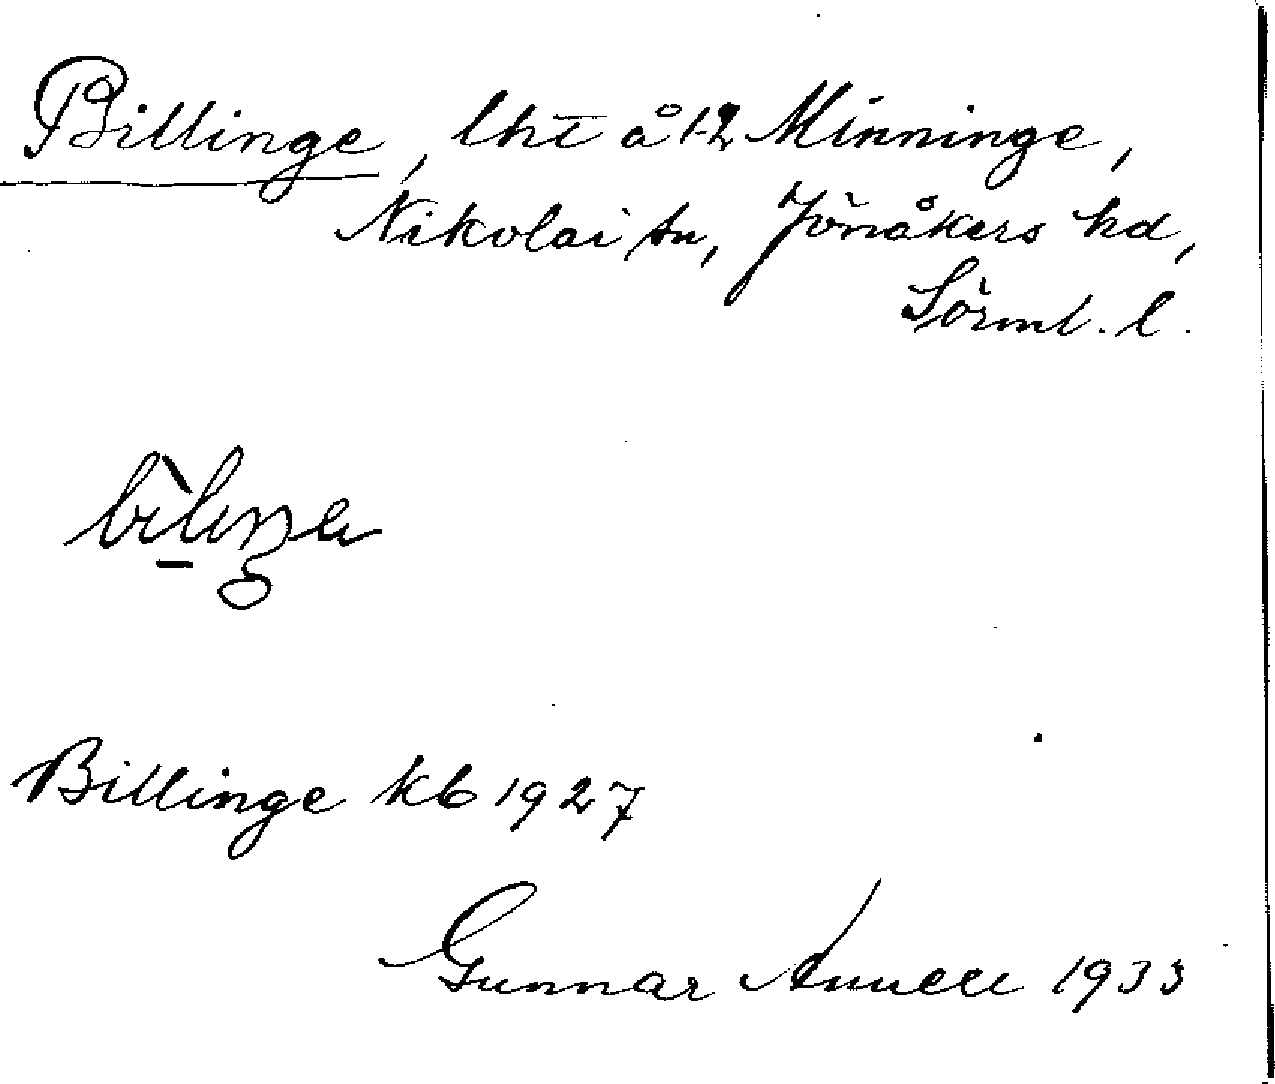 Billinge, lht å 1-2 Minninge,
Nikolai sn, Jönåkers hd,
Sörml. l.
bìlıŋa
Billinge kb 1927
Gunnar 1933